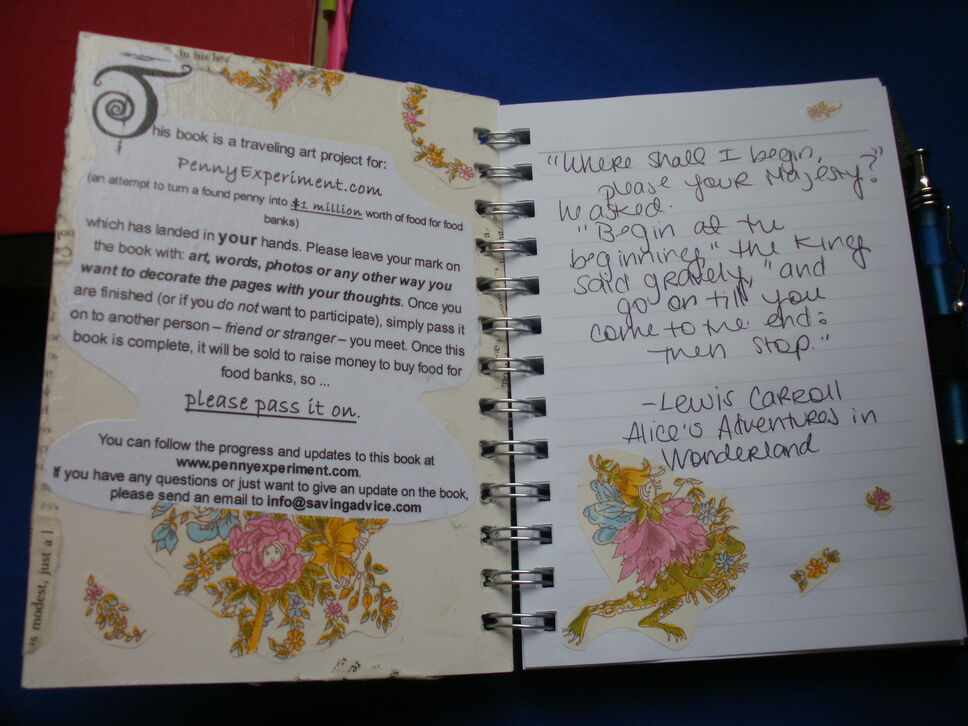 In his her
This book is a traveling art project for:
PennyExperiment.com
(an attempt to turn a found penny into $1 million worth of food for food
banks)
which has landed in your hands. Please leave your mark on
the book with: art, words, photos or any other way you
want to decorate the pages with your thoughts. Once you
are finished (or if you do not want to participate), simply pass it
on to another person – friend or stranger – you meet. Once this
book is complete, it will be sold to raise money to buy food for
food banks, so ...
please pass it on.
You can follow the progress and updates to this book at
www.pennyexperiment.com.
If you have any questions or just want to give an update on the book,
please send an email to info@savingadvice.com
modest, just a l
"Where shall I begin,
please your Majesty?"
he asked.
"Begin at the
beginning," the King
said gravely, "and
go on till you
come to the end:
then stop."
-Lewis Carroll
Alice's Adventures in
Wonderland